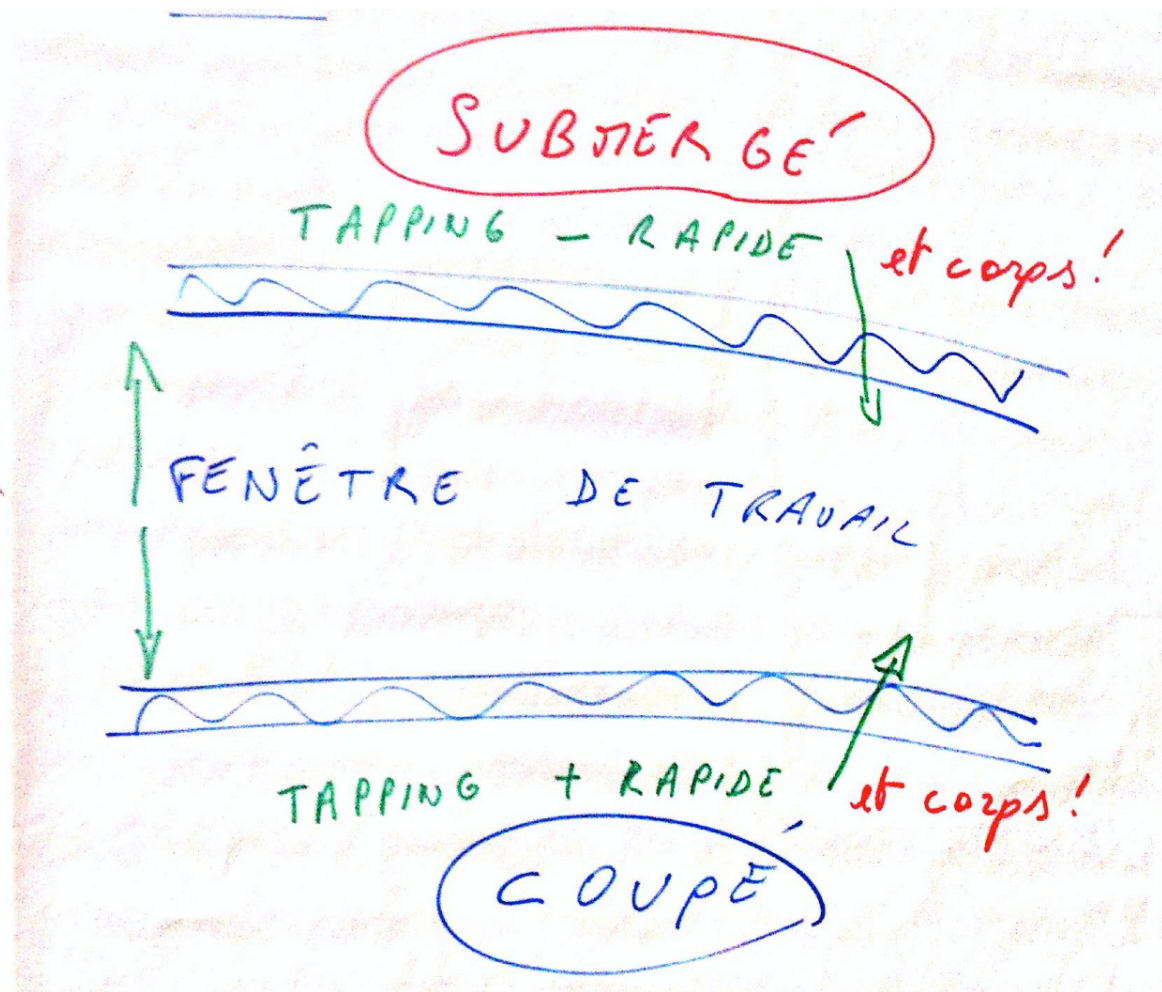 SUBMERGÉ
TAPPING - RAPIDE et corps!
FENÊTRE DE TRAVAIL
TAPPING + RAPIDE et corps!
COUPÉ